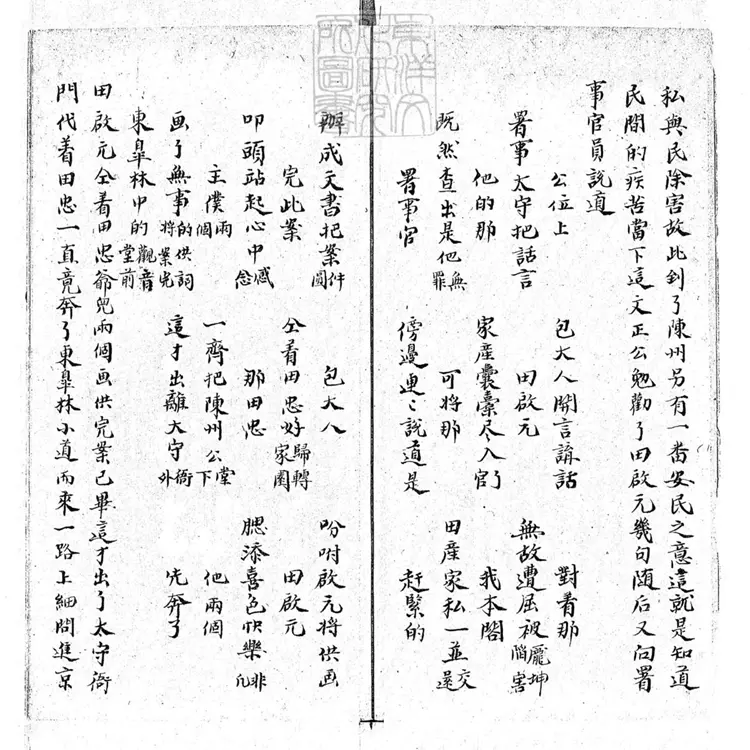 私與民除害故此到了陳州另有一番安民之意這就是知道
民間的疾苦當下這文正公勉勸了田啟元幾句随后又向署
事官員説道
公位上 包大人開言諕話 對着那
署事太守把話言 田啟元 無故遭屈被龐坤陷害
他的那 家產囊橐尽入官了 我本閣
既然查出是他無罪 可将那 田産家私一並交還
署事官 傍邊連〻說道是 赶緊的
辦成文書把案件圓 包大人 吩咐啟元将供画
完此案 仝着田忠好歸轉家園 田啟元
叩頭站起心中感念 那田忠 腮添喜色快樂非凡
主僕兩個 一齊把陳州公堂下 他兩個
画了無事的供詞将案完 這才出離太守衙外 先奔了
東皐林中的觀音堂前
田啟元仝着田忠爺兒兩個画供完業已畢這才出了太守衙
門代着田忠一直竟奔了東皐林小道而來一路上細問進京
東洋文化研究所圖書